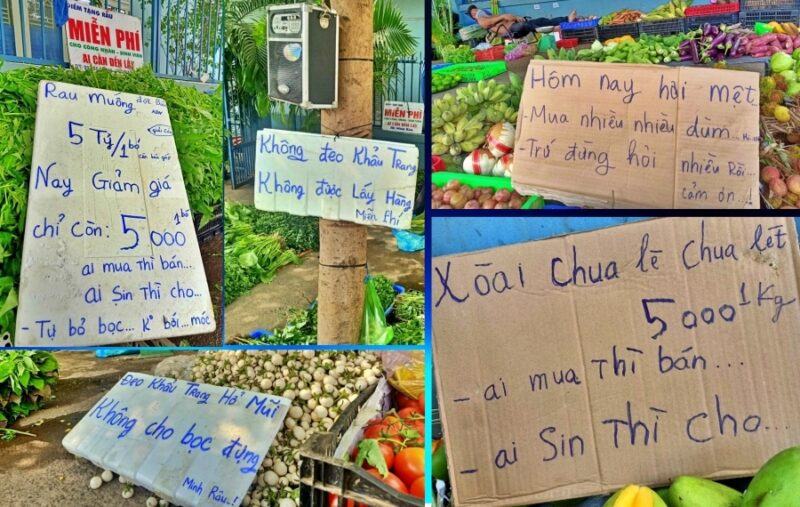 ĐIỂM TẶNG RAU
MIỄN PHÍ
CHO CÔNG NHÂN - SINH VIÊN
AI CẦN ĐẾN LẤY
Rau Muống
5 Tỷ/1 bó
Nay Giảm giá
chỉ còn: 5000 1 bó
ai mua Thì bán...
ai Sin Thì cho...
- Tự bỏ bọc... K° bới... móc
MIỄN PHÍ
Không đeo Khẩu Trang
Không được Lấy Hàng
Miễn Phí
Hôm nay hỏi mệt
- Mua nhiều nhiều dùm...
- Trứ đừng hỏi nhiều Rồi...
cảm ơn...!
Đeo Khẩu Trang Hở Mũi
Không cho bọc đựng
Minh Râu..!
Xõai chua lè chua lét
5000 1 Kg
- ai mua Thì bán...
- ai Sin Thì cho...